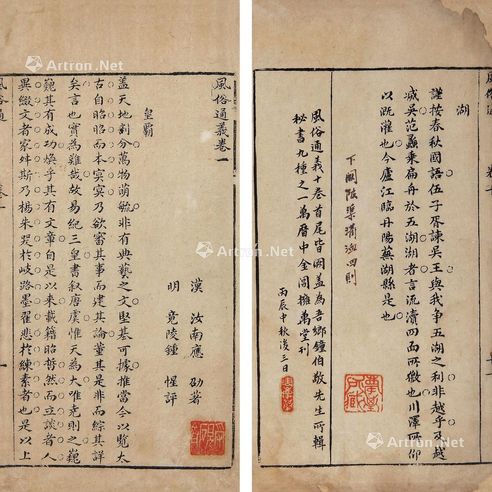 風俗通義卷一
漢 汝南應 劭著
明 竟陵鍾 惺評
皇霸
蓋天地剖分萬物萌毓非有典藝之文堅基可據推當今以覽太
古自昭昭而本冥冥乃欲審其事而建其論董其是非而綜其詳
矣言也實為難哉故易紀三皇書叙唐虞惟天為大唯堯則之巍
巍其有成功煥乎其有文章自是以來載籍昭晢然而立談者人
異綴文者家舛斯乃楊朱哭於岐路墨翟悲於練素者也是以上
風俗通 卷一
風俗通 卷十
湖
謹按春秋國語伍子胥諫吳王與我爭五湖之利非越乎及越
滅吳范蠡乘扁舟於五湖湖者言流瀆四面所猥也川澤所仰
以溉灌也今廬江臨丹陽蕪湖縣是也
下闕陂渠溝洫四則
風俗通義十卷首尾皆闕蓋為吾鄉鍾伯敬先生所輯
秘書九種之一萬曆中金閶擁萬堂刊
丙辰中秋後三日
Artron.Net
Artron.Net
Artron.Net
Artron.Net